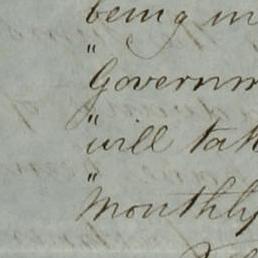 being in
"
Governm
"
will tak
"
monthly